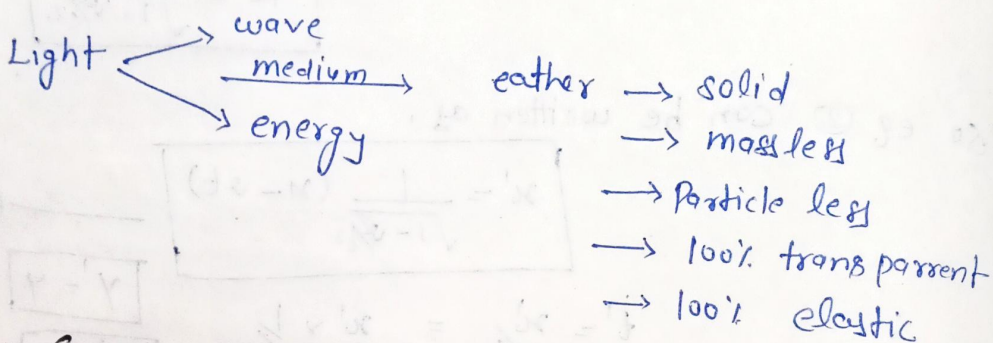 Light → wave
medium → eather → solid
→ energy → massless
→ Particle less
→ 100% transparrent
→ 100% elastic